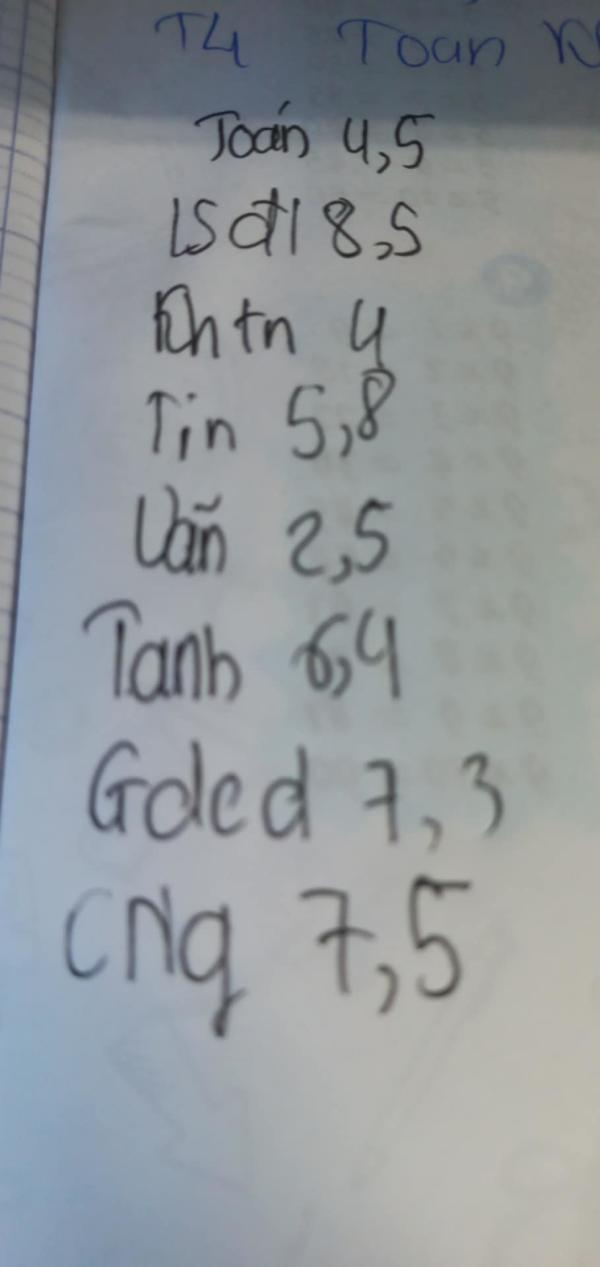 T4 Toan
Toán 4,5
LS đl 8,5
Khtn 4
Tin 5,8
Văn 2,5
Tanh 6,4
Gdcd 7,3
CNg 7,5